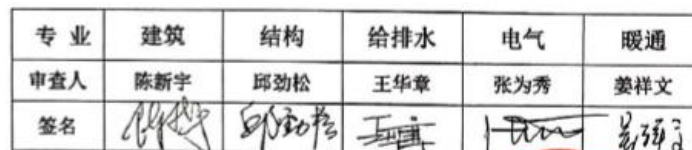 专业 建筑 结构 给排水 电气 暖通
审查人 陈新宇 邱劲松 王华章 张为秀 姜祥文
签名 邱劲松